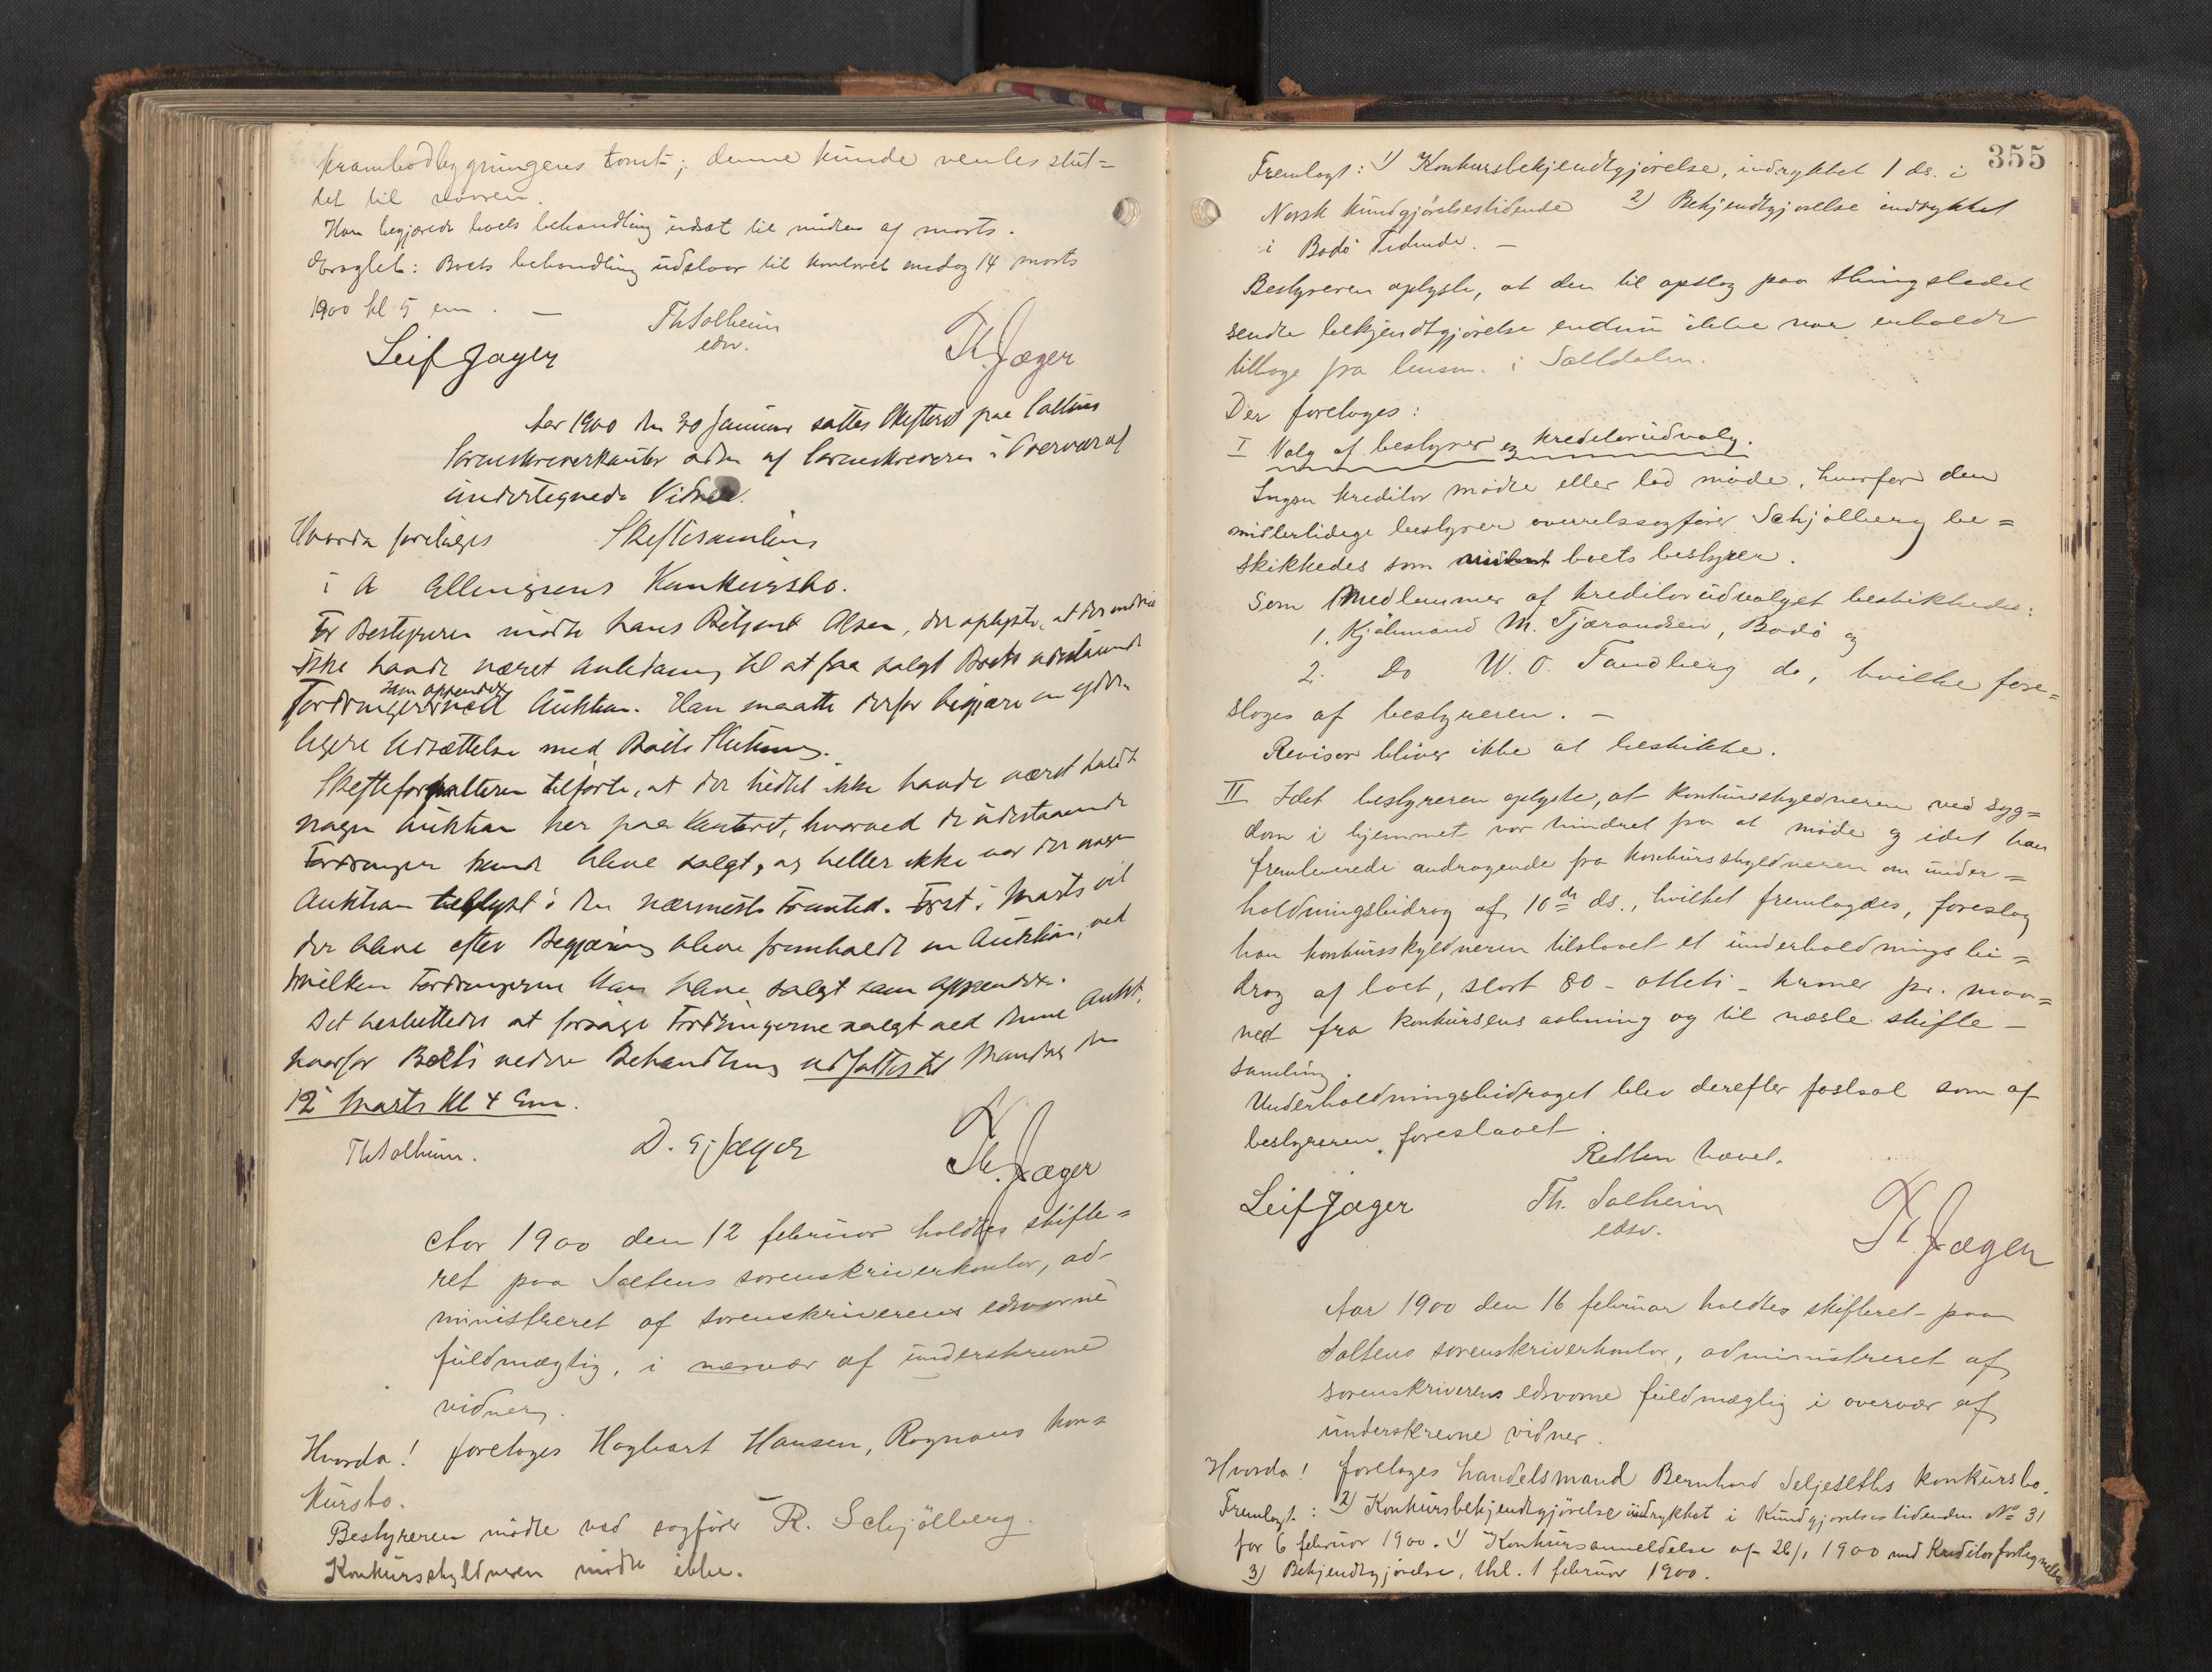 krambodbygningens tomt; denne kunde ventes slut-
tet til vaaren.
Han begjærede boets behandling udsat til midten af marts.
Eragtet: Boets behandling udstaar til kontoret onsdag 14 marts
1900 kl. 5 em. —
Th Solheim
edsv.
Leif Jæger
Th. Jæger
Aar 1900 den 30 Januar sattes Skifteret paa Saltens
Sorenskriverkontor adm af Sorenskriveren i Overvær af
undertegnede Vidner.
Hvorda foretages Skiftesamling
i A Ellingsens Konkursbo.
For Bestyreren mødte hans Betjent Olsen, der oplyste, at der endnu
ikke havde været Anledning til at faa solgt Boets udestaaende
Fordringer som appendix ved Auktion. Han maatte derfor begjære en yder-
ligere Udsættelse med Boets Slutning.
Skifteforvalteren tilførte, at der hidtil ikke havde været holdt
nogen Auktion her paa Kontoret, hvorved de udestaaende
Fordringer kunde blive solgt, og heller ikke var der nogen
Auktion tillyst i den nærmeste Fremtid. Først i Marts vil
der blive efter Begjæring blive fremholdt en Auktion, ved
hvilken Fordringerne kan blive solgt som appendix.
Det besluttedes at forsøge Fordringerne solgt ved denne Aukt.
hvorfor Boets videre Behandling udsattes til Mandag den
12 Marts kl 4 Em.
Th Solheim.
D. E. Jæger
Th. Jæger
Aar 1900 den 12 februar holdtes skifte=
ret paa Saltens sorenskriverkontor, ad-
ministreret af sorenskriverens edsvorne
fuldmægtig, i nærvær af underskrevne
vidner.
Hvorda! foretages Hagbart Hansen, Rognans kon=
kursbo.
Bestyreren mødte ved sagfører R. Schjølberg.
Konkursskyldneren mødte ikke.
355
Fremlagt: 1) Konkursbekjendtgjørelse, indrykket 1 ds. i
Norsk Kundgjørelsestidende 2) Bekjendtgjørelse indrykket
i Bodø Tidende. —
Bestyreren oplyste, at den til opslag paa thingstedet
sendte bekjendtgjørelse endnu ikke var erholdt
tilbage fra lensm. i Saltdalen.
Der foretoges:
I Valg af bestyrer og kreditorudvalg.
Ingen kreditor mødte eller lod møde, hvorfor den
midlertidige bestyrer overretssagfører Schjølberg be=
skikkedes som boets bestyrer.
Som Medlemmer af kreditorudvalget beskikkedes:
1. Kjøbmand M. Tjærandsen, Bodø og
2. Do W. O. Tandberg do, hvilke fore=
sloges af bestyreren. —
Revisor bliver ikke at beskikke.
II Idet bestyreren oplyste, at konkursskyldneren ved syg=
dom i hjemmet var hindret fra at møde og idet han
fremleverede andragende fra konkursskyldneren om under=
holdningsbidrag af 10de ds., hvilket fremlagdes, foreslog
han konkursskyldneren tilstaaet et underholdningsbi=
drag af boet, stort 80 - otteti - kroner pr. maa=
ned fra konkursens aabning og til næste skifte-
samling.
Underholdningsbidraget blev derefter fastsat som af
bestyreren foreslaaet.
Retten hævet.
Leif Jæger
Th. Solheim
edsv.
Th. Jæger
Aar 1900 den 16 februar holdtes skifteret paa
Saltens sorenskriverkontor, administreret af
sorenskriverens edsvorne fuldmægtig i overvær af
underskrevne vidner.
Hvorda! foretages handelsmand Bernhard Seljeseths konkursbo.
Fremlagt: 2) Konkursbekjendtgjørelse indrykket i Kundgjørelsestidenden No 31
for 6 februar 1900. 1) Konkursanmeldelse af 26/1 1900 med Kreditorfortegnelse
3) Bekjendtgjørelse, thl. 1 februar 1900.